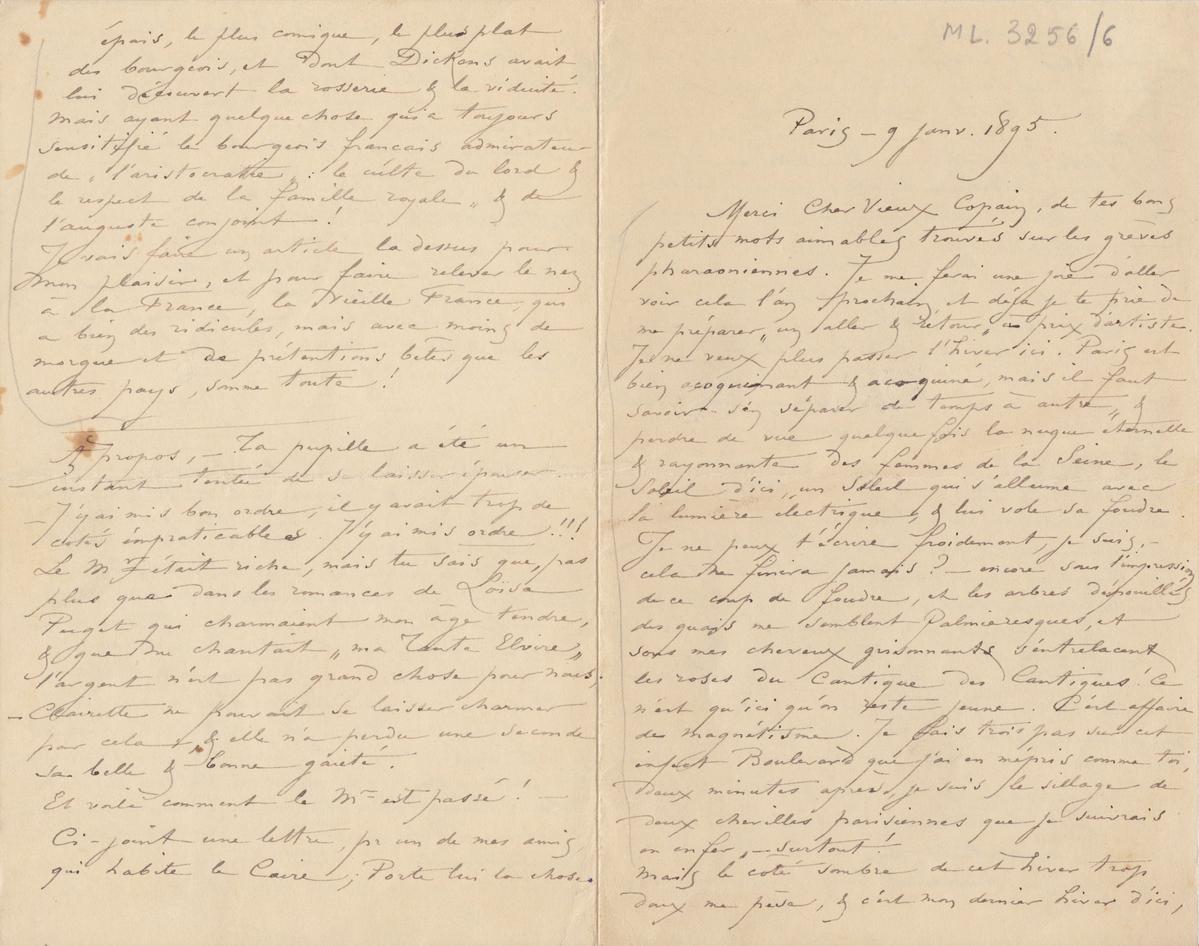 ML. 3256/6
Paris – 9 janv. 1895.
Merci Cher Vieux Copain, de tes bons
petits mots aimables trouvés sur les grèves
pharaoniennes. Je me ferai une joie d'aller
voir cela l'an prochain et déjà je te prie de
me préparer „ un aller & retour „ à prix d'artiste.
Je ne veux plus passer l'hiver ici. Paris est
bien acoquinant & acoquiné, mais il faut
savoir s'en séparer de temps à autre „ &
perdre de vue quelque fois la nuque éternelle
& rayonnante des femmes de la Seine, le
Soleil d'ici „ un Soleil qui s'allume avec
la lumière electrique „ & lui vole sa foudre.
Je ne peux t'écrire froidement, je suis, –
cela ne finira jamais ? – encore sous l'impression
de ce coup de foudre, et les arbres dépouillés
des quais me semblent Palmieresques, et
sous mes cheveux grisonnants s'entrelacent
les roses du Cantique des Cantiques ! Ce
n'est qu'ici qu'on reste jeune. C'est affaire
de magnétisme. Je fais trois pas sur cet
infect Boulevard que j'ai en mépris comme toi,
deux minutes après, je suis le sillage de
deux chevilles parisiennes que je suivrais
en enfer „ – surtout !
Mais le coté sombre de cet hiver trop
doux me pèse, & c'est mon dernier hiver d'ici,
épais, le plus comique, le plus plat
des bourgeois, et dont Dickens avait
lui découvert la rosserie & la viduité.
Mais ayant quelque chose qui a toujours
sensitifié le bourgeois francais admirateur
de „ l'aristocratie „ : le culte du lord &
le respect de la famille royale „ & de
l'auguste conjoint !
Je vais faire un article la dessus pour
mon plaisir, et pour faire relever le nez
à la France, la Vieille France, qui
a bien des ridicules, mais avec moins de
morgue et de prétentions bêtes que les
autres pays, somme toute !
A propos, – Ta pupille a été un
instant tentée de se laisser épouser
– J'y ai mis bon ordre, il y avait trop de
cotés impraticables. J'y ai mis ordre !!!
Le Mr était riche, mais tu sais que, pas
plus que dans les romances de Loïsa
Puget qui charmaient mon âge tendre,
& que me chantait „ ma Tante Elvire „
l'argent n'est pas grand chose pour nous ;
– Clairette ne pouvait se laisser charmer
par cela „ & elle n'a perdu une seconde
sa belle & bonne gaieté.
Et voilà comment le Mr est passé ! –
Ci-joint une lettre, pr un de mes amis,
qui habite le Caire ; Porte lui la chose.